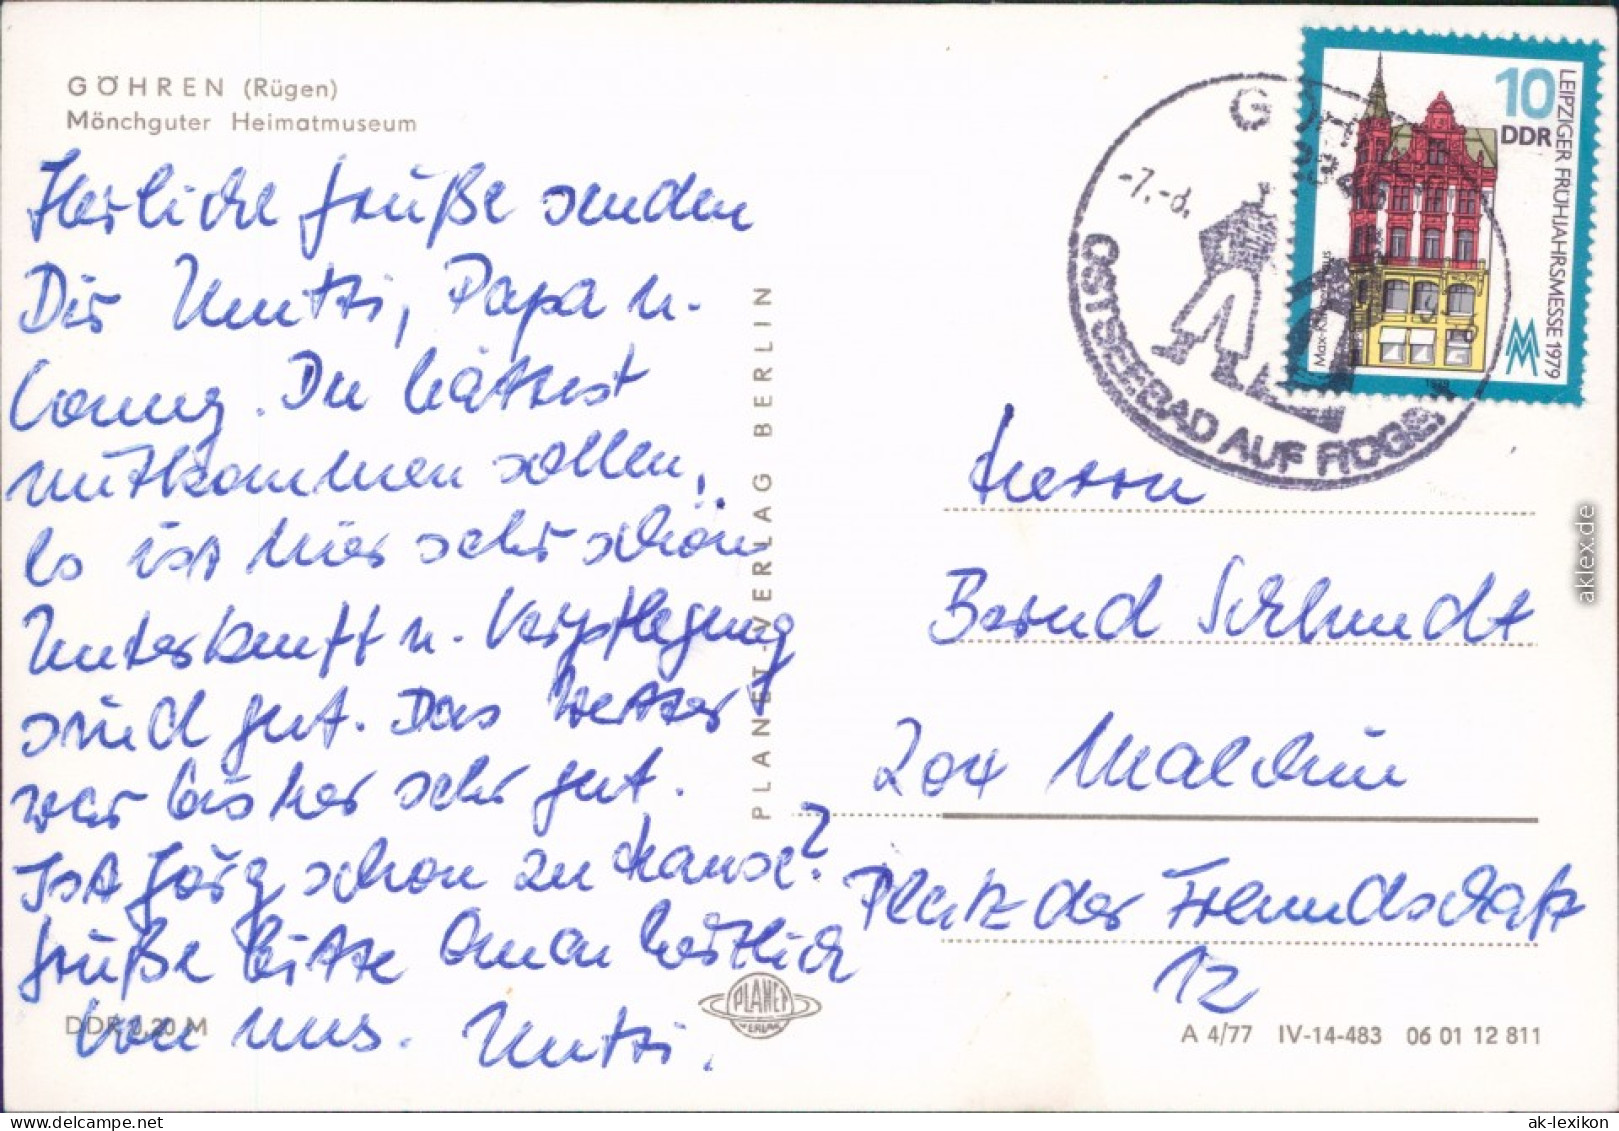 GÖHREN (Rügen)
Mönchguter Heimatmuseum
Herzliche Grüße senden
Dir Mutti, Papa u.
Conny. Du hättest
mitkommen sollen,
Es ist hier sehr schön
Unterkunft u. Verpflegung
sind gut. Das Wetter
war bisher sehr gut.
Ist Jörg schon zu Hause?
Grüße bitte Oma herzlich
von uns. Mutti.
DDR 0,20 M
PLANET-VERLAG BERLIN
PLANET
VERLAG
GÖHREN
-7.-6.
OSTSEEBAD AUF RÜGEN
10
DDR
LEIPZIGER FRÜHJAHRSMESSE 1979
MM
1979
Herrn
Bernd Schmidt
204 Malchin
Platz der Freundschaft
12
A 4/77 IV-14-483 06 01 12 811
aklex.de
www.delcampe.net
ak-lexikon